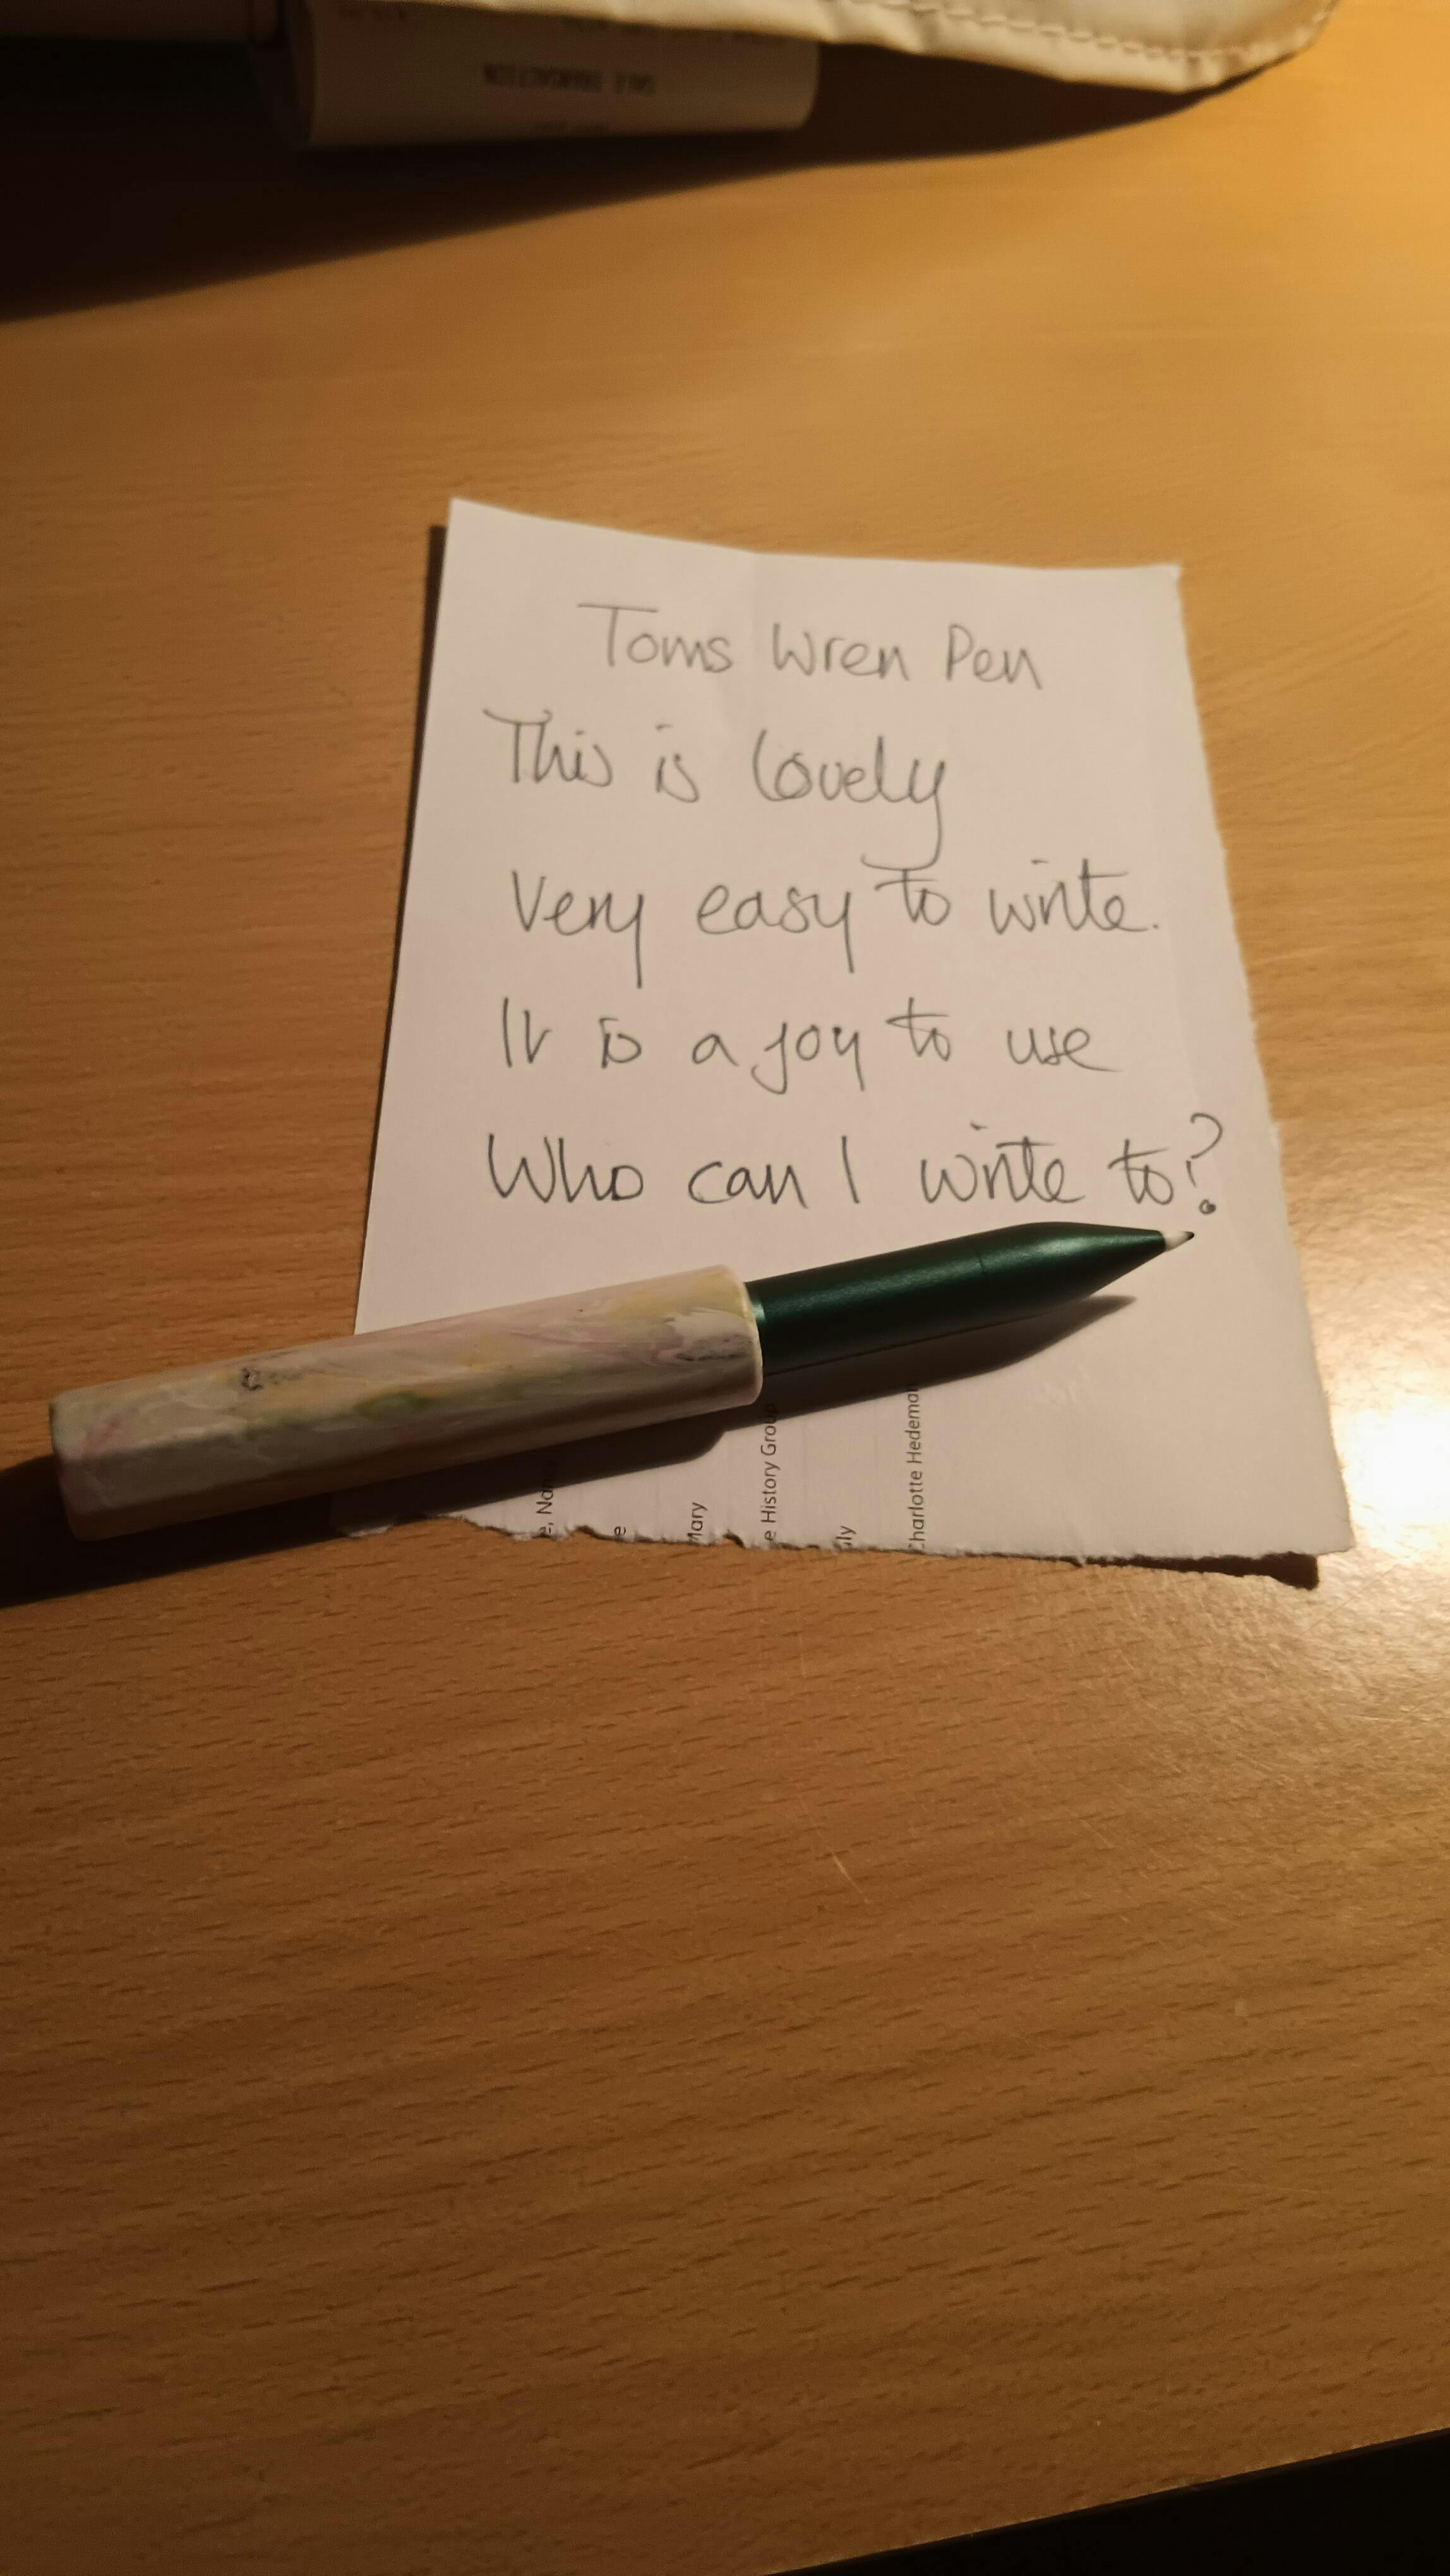 SALE TRANSACTION
Toms Wren Pen
This is lovely
Very easy to write.
It is a joy to use
Who can I write to?
e History Group
Charlotte Hedeman
Mary